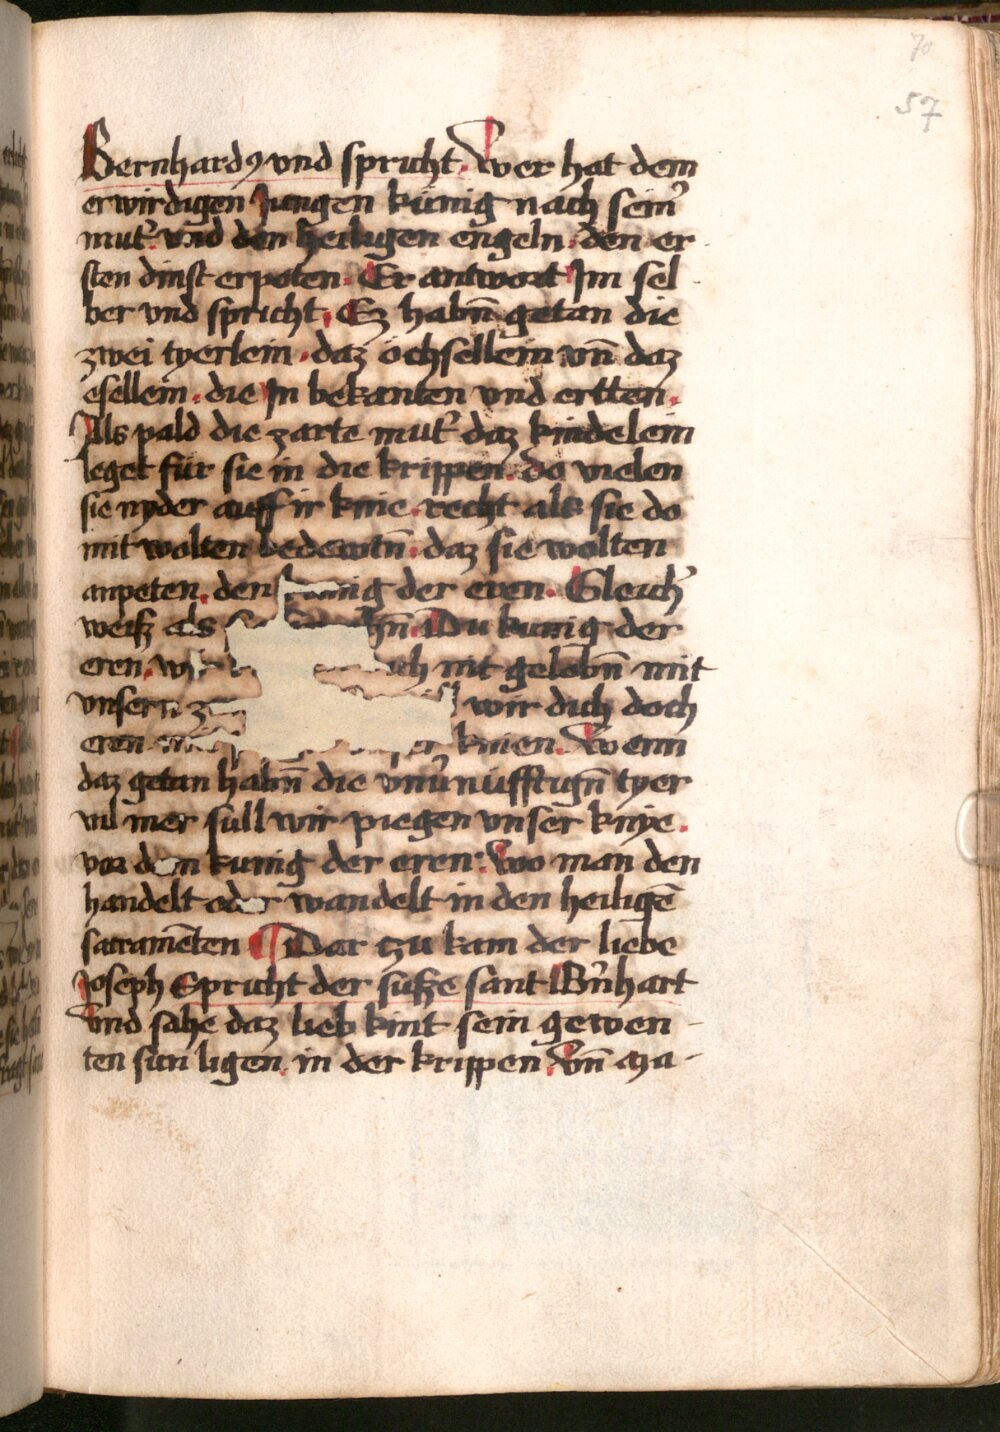 70
57
Bernhardꝰ vnd spricht. Wer hat dem
erwirdigen Jungen kunig nach sein̾
mut̾. vnd den heiligen engeln. den er
sten dinst erpoten. Er antwort Im sel
ber vnd spricht. Ez habn̄ getan die
zwei tyerlein. daz ochsellein vn̄ daz
esellein. die In bekanten vnd ertten.
Als pald die zarte mut̾ daz kindelein
leget für sie in die krippen. do vielen
sie nyder auff ir knie. recht als sie do
mit wolten bedewtn̄. daz sie wolten
anpeten. den der eren. Gleich̾
weiß als Du kunig der
eren. nit gelobn̄ mit
vnsern wir dich doch
eren knien. Wenn
daz getan habn̄ die vnu̾nufftign̄ tyer
vil mer sull wir piegen vnser knye.
vor den kunig der eren. Wo man den
handelt oder wandelt in den heiligē
sacramēten ¶ Dar tzu kam der liebe
Joseph Spricht der suße sant B̾nhart
Vnd sahe daz lieb kint sein gewen-
ten sun ligen in der krippen. Vn̄ Ma-